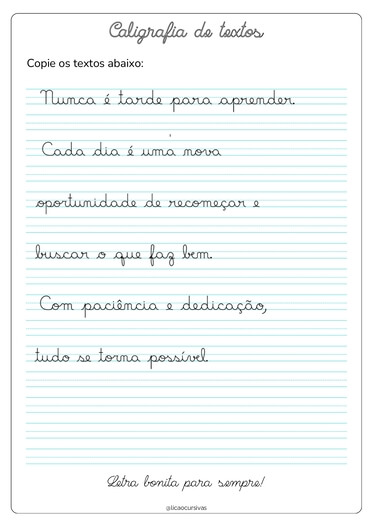 Caligrafia de textos
Copie os textos abaixo:
Nunca é tarde para aprender.
Cada dia é uma nova
oportunidade de recomeçar e
buscar o que faz bem.
Com paciência e dedicação,
tudo se torna possível.
Letra bonita para sempre!
@licaocursivas